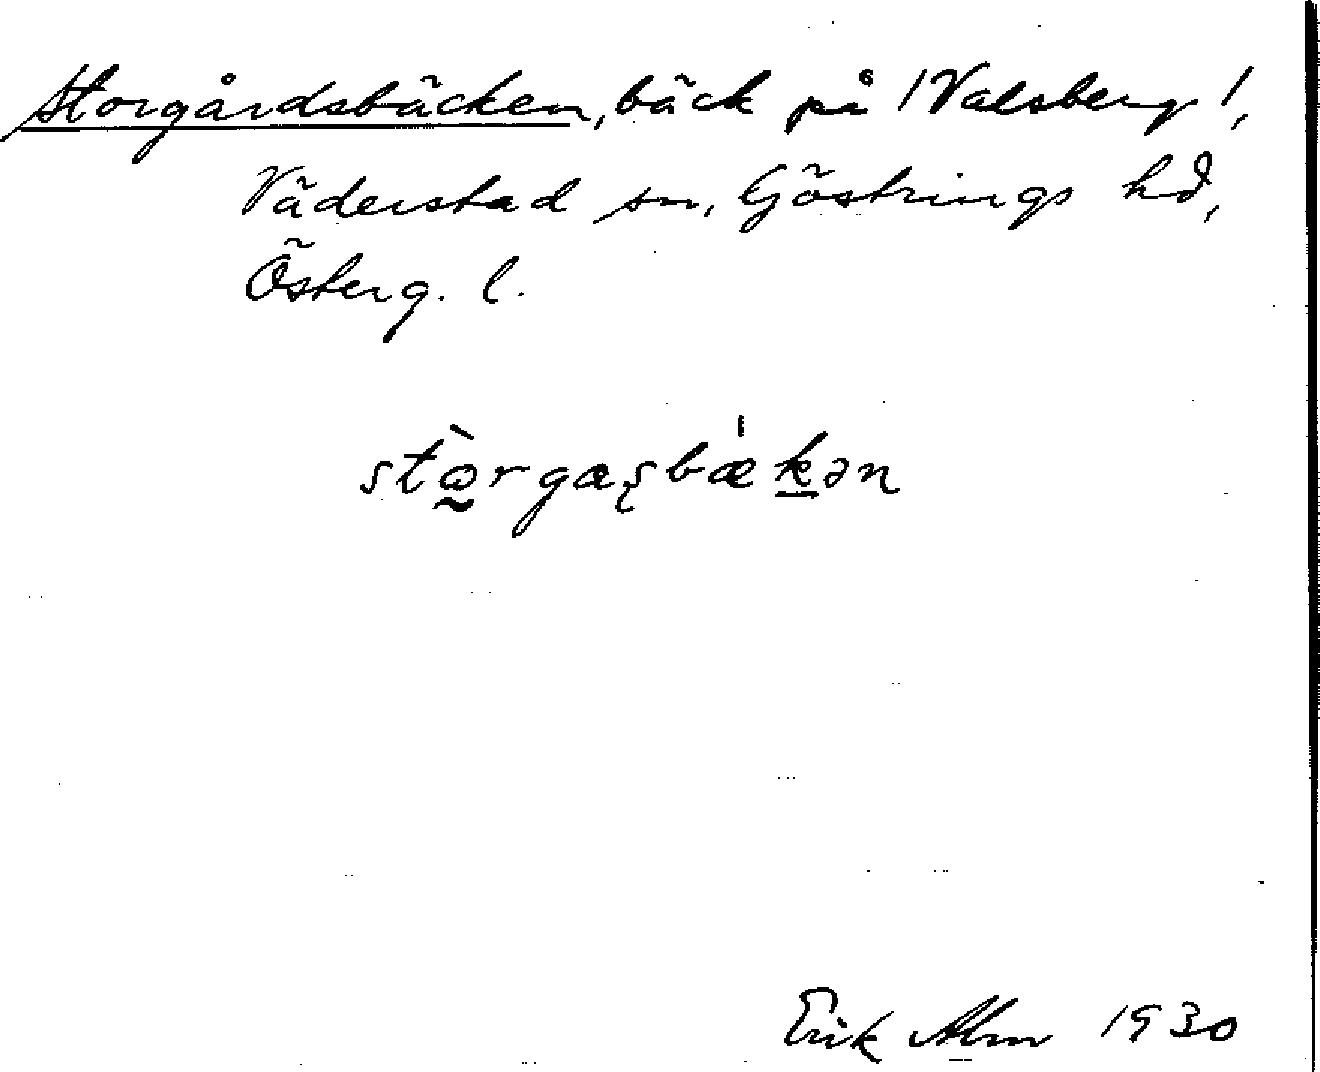 Storgårdsbäcken, bäck på /Valsberg/,
Väderstad sn, Göstrings hd,
Österg. l.
stɷ̰̀rgæʂbæ̍ḵən
Erik Alm 1930